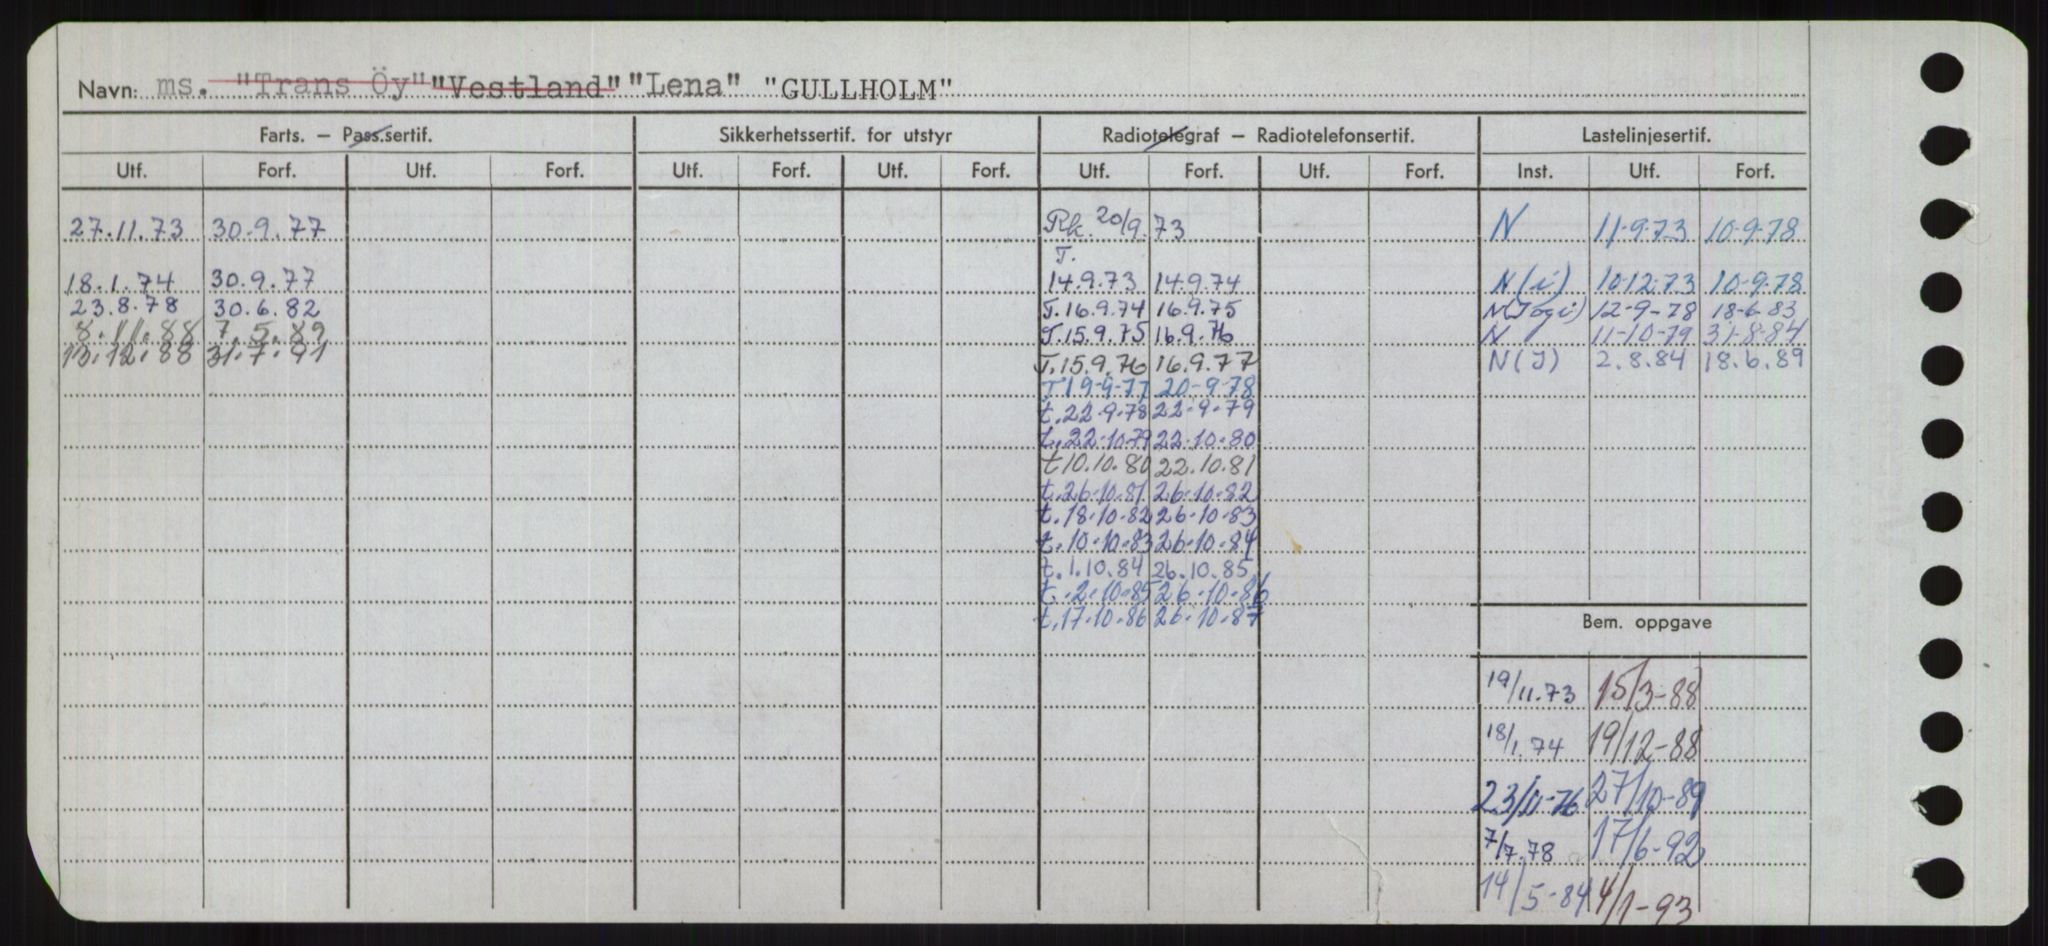 Navn: ms. "Trans Öy" "Vestland" "Lena" "GULLHOLM"
Farts. – Pass.sertif. Sikkerhetssertif. for utstyr Radiotelegraf – Radiotelefonsertif. Lastelinjesertif.
Utf. Forf. Utf. Forf. Utf. Forf. Utf. Forf. Utf. Forf. Utf. Forf. Inst. Utf. Forf.
27.11.73 30.9.77 Rk. 20/9.73 N 11-9-73 10-9-78
T.
18.1.74 30.9.77 14.9.73 14.9.74 N(i) 10-12-73 10-9-78
23.8.78 30.6.82 T.16.9.74 16.9.75 N(Jogi) 12-9-78 18-6-83
8.11.88 7.5.89 T.15.9.75 16.9.76 N 11-10-79 31-8-84
13.12.88 31.7.91 T.15.9.76 16.9.77 N(J) 2.8.84 18.6.89
T 19-9-77 20-9-78
t.22-9-78 22-9-79
t.22-10-79 22-10-80
t 10.10.80 22.10.81
t.26-10-81 26-10-82
t.18-10-82 26-10-83
t.10-10-83 26-10-84
t.1.10.84 26.10.85
t.2-10-85 26-10-86
t.17-10-86 26-10-87
Bem. oppgave
19/11.73 15/3-88
18/1.74 19/12-88
23/11-76 27/10-89
7/7.78 17/6-92
14/5-84 4/1-93